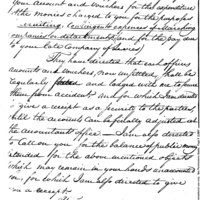 your account and vouchers for the expenditure
of the monies charged to you for the purposes
recruiting
companies or detachments (and for the pay due
to your late Company of Levies)
They have directed that each officers
accounts and vouchers, now unsettled, shall be
regularly and lodged with me to found
them from accident and for which I am directed
to give a receipt as a security to the parties,
till the accounts can be fully adjusted at
the accountants office — I am also directed
to call on you for the balance of public money
intended for the above mentioned objects
which may remain in your hands unaccounted
for, for which I am also directed to give
you a receipt—